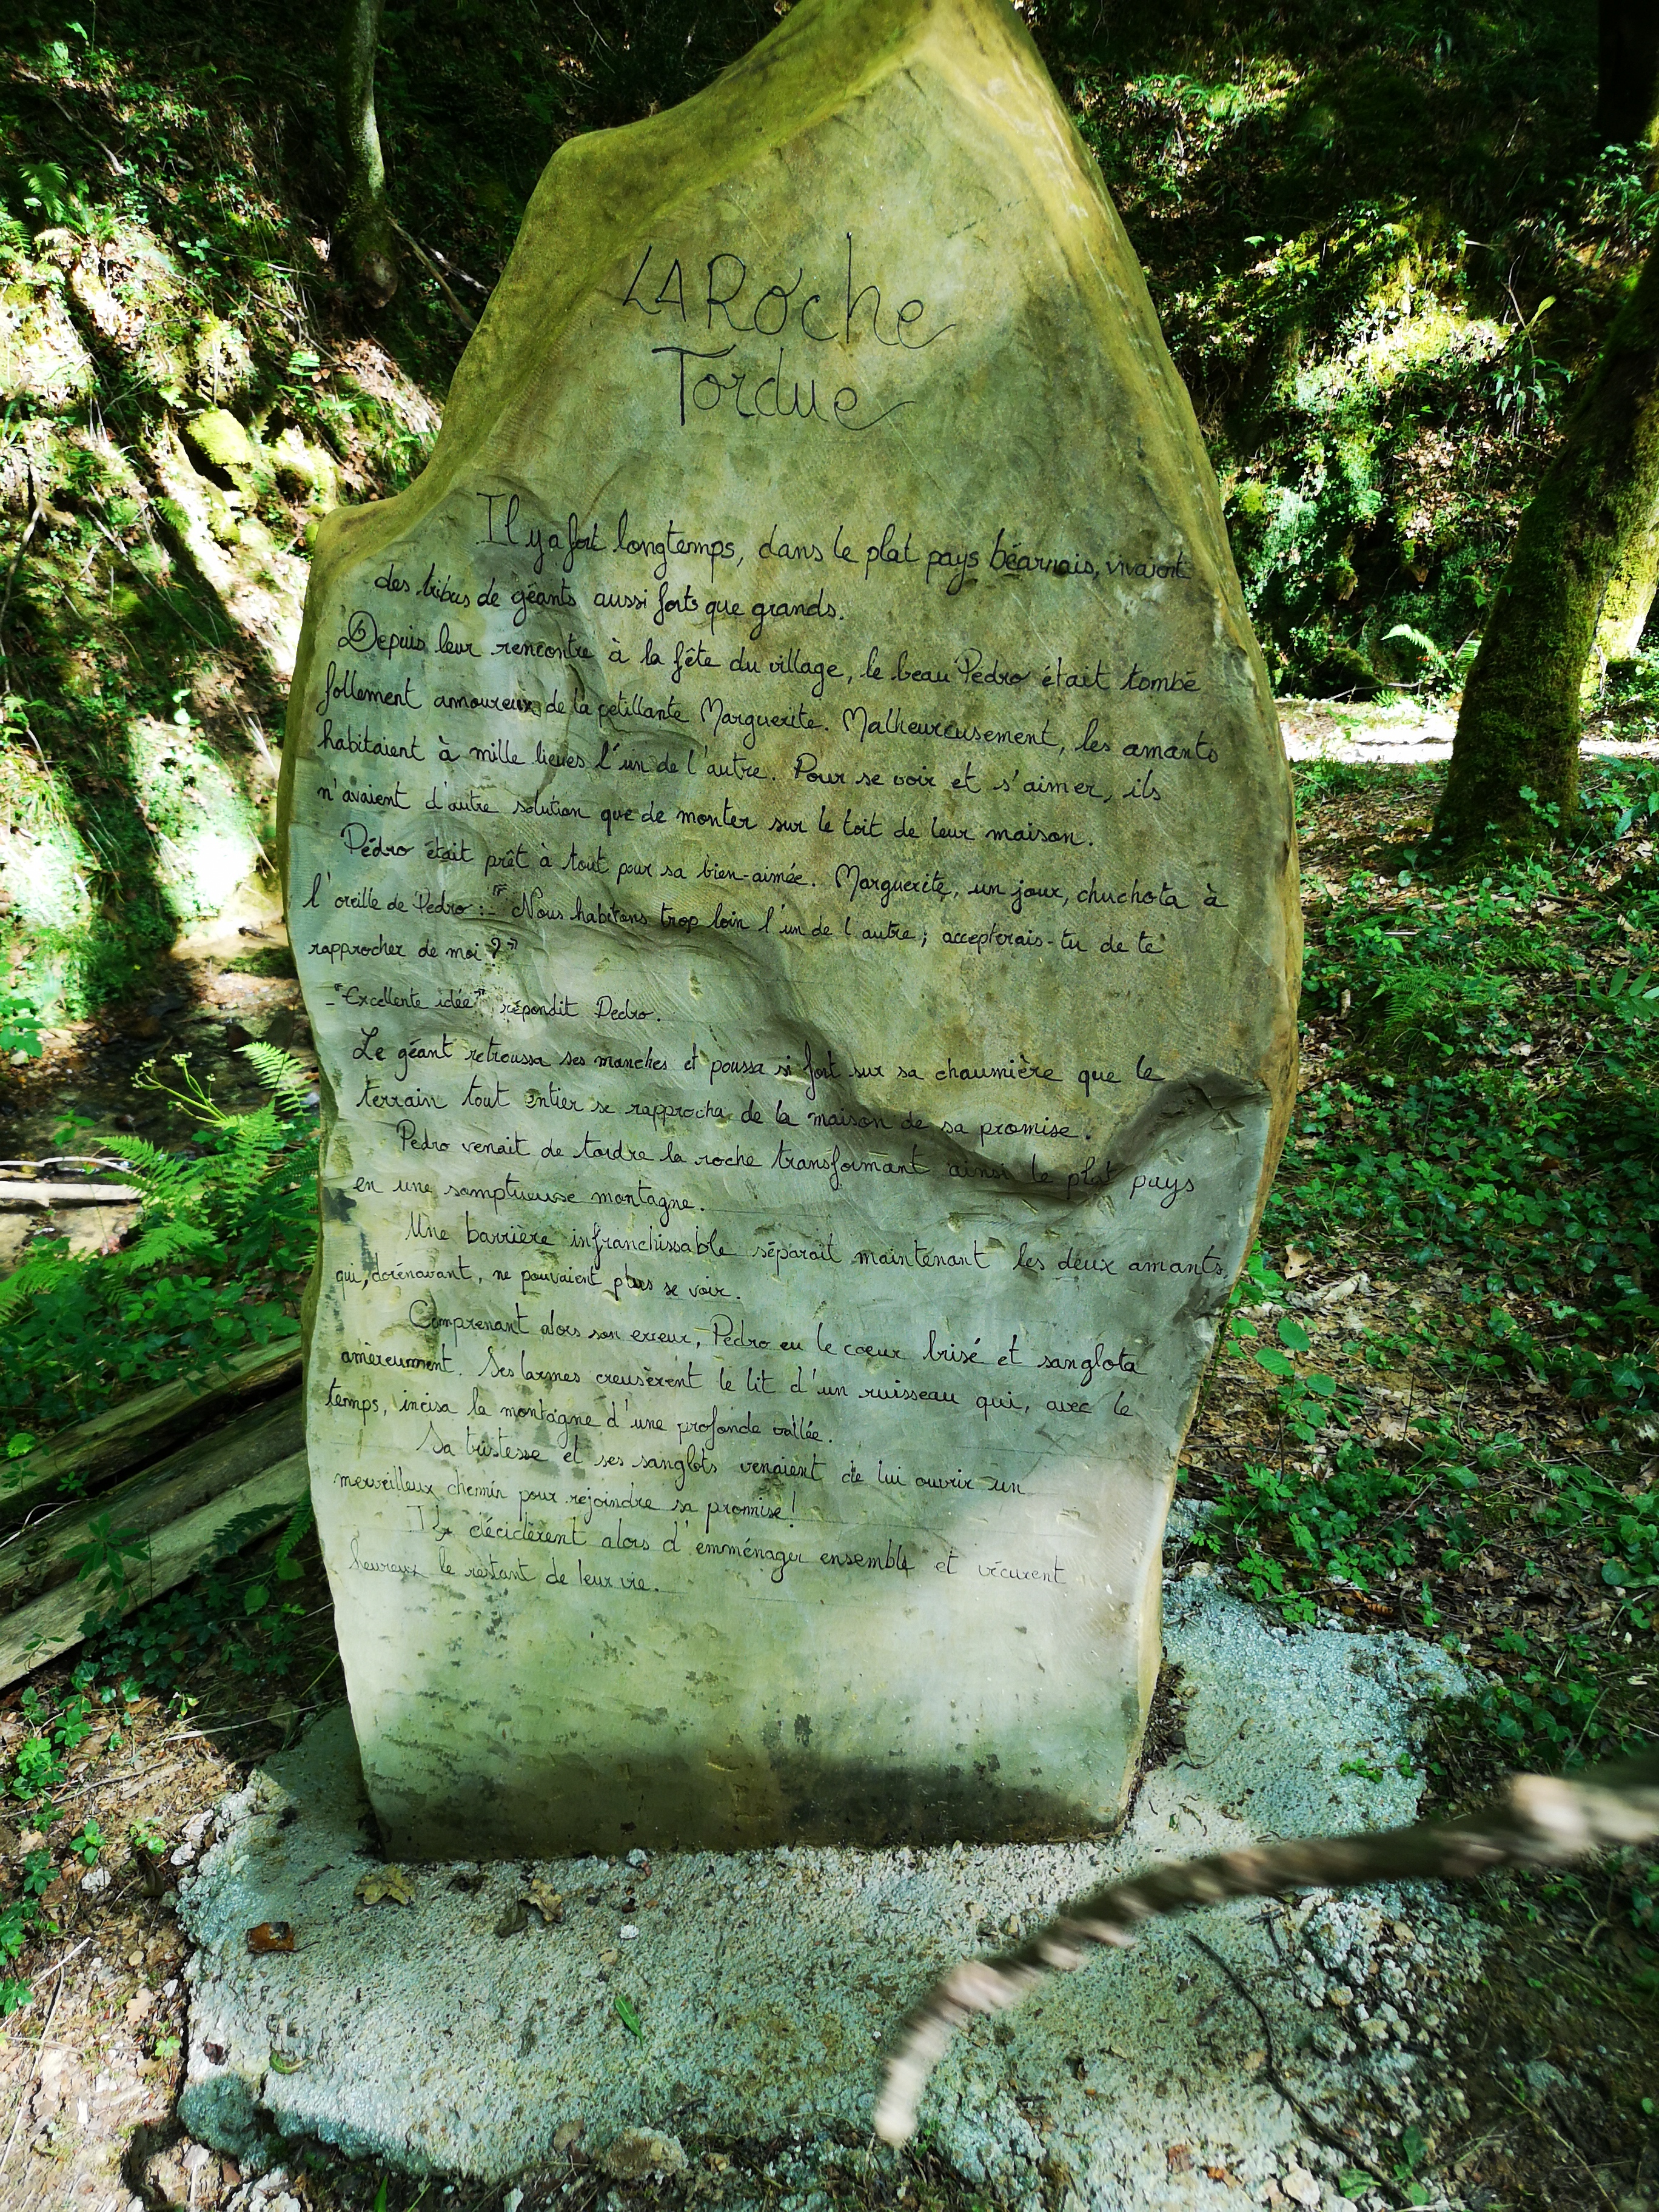 LA Roche
Tordue
Il y a fort longtemps, dans le plat pays béarnais, vivaient
des tribus de géants aussi forts que grands.
Depuis leur rencontre à la fête du village, le beau Pédro était tombé
follement amoureux de la petillante Marguerite. Malheureusement, les amants
habitaient à mille lieues l'un de l'autre. Pour se voir et s'aimer, ils
n'avaient d'autre solution que de monter sur le toit de leur maison.
Pédro était prêt à tout pour sa bien-aimée. Marguerite, un jour, chuchota à
l'oreille de Pedro :-"Nous habitons trop loin l'un de l'autre; accepterais-tu de te
rapprocher de moi ?"
-"Excellente idée", répondit Pedro.
Le géant retroussa ses manches et poussa si fort sur sa chaumière que le
terrain tout entier se rapprocha de la maison de sa promise.
Pedro venait de tordre la roche transformant ainsi le plat pays
en une somptueuse montagne.
Une barrière infranchissable séparait maintenant les deux amants,
qui, dorénavant, ne pouvaient plus se voir.
Comprenant alors son erreur, Pedro eu le coeur brisé et sanglota
amèreument. Ses larmes creusèrent le lit d'un ruisseau qui, avec le
temps, incisa la montagne d'une profonde vallée.
Sa tristesse et ses sanglots venaient de lui ouvrir un
merveilleux chemin pour rejoindre sa promise!
Ils décidèrent alors d'emménager ensemble et vécurent
heureux le restant de leur vie.